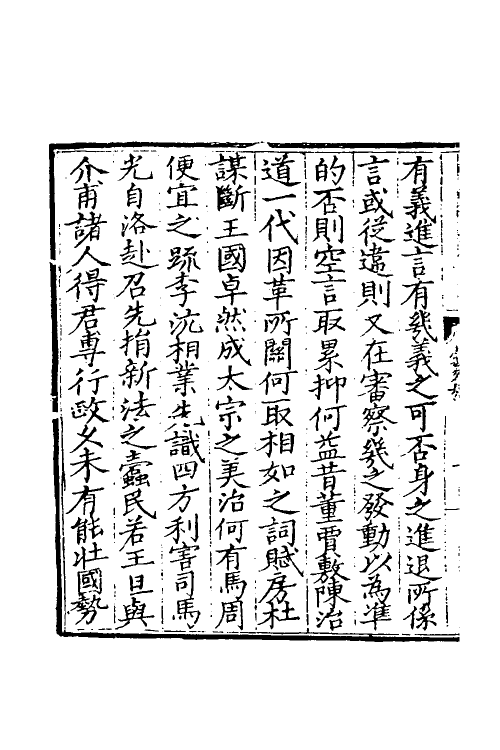 有義進言有㡬義之可否身之進退所係
言或從違則又在審察㡬之發動以為準
的否則空言取累抑何益昔董賈敷陳治
道一代因革所關何取相如之詞賦房杜
謀斷王國卓然成太宗之美治何有馬周
便宜之䟽李沆相業先識四方利害司馬
光自洛赴召先捐新法之蠹民若王旦與
介甫諸人得君專行政久未有能壯國勢